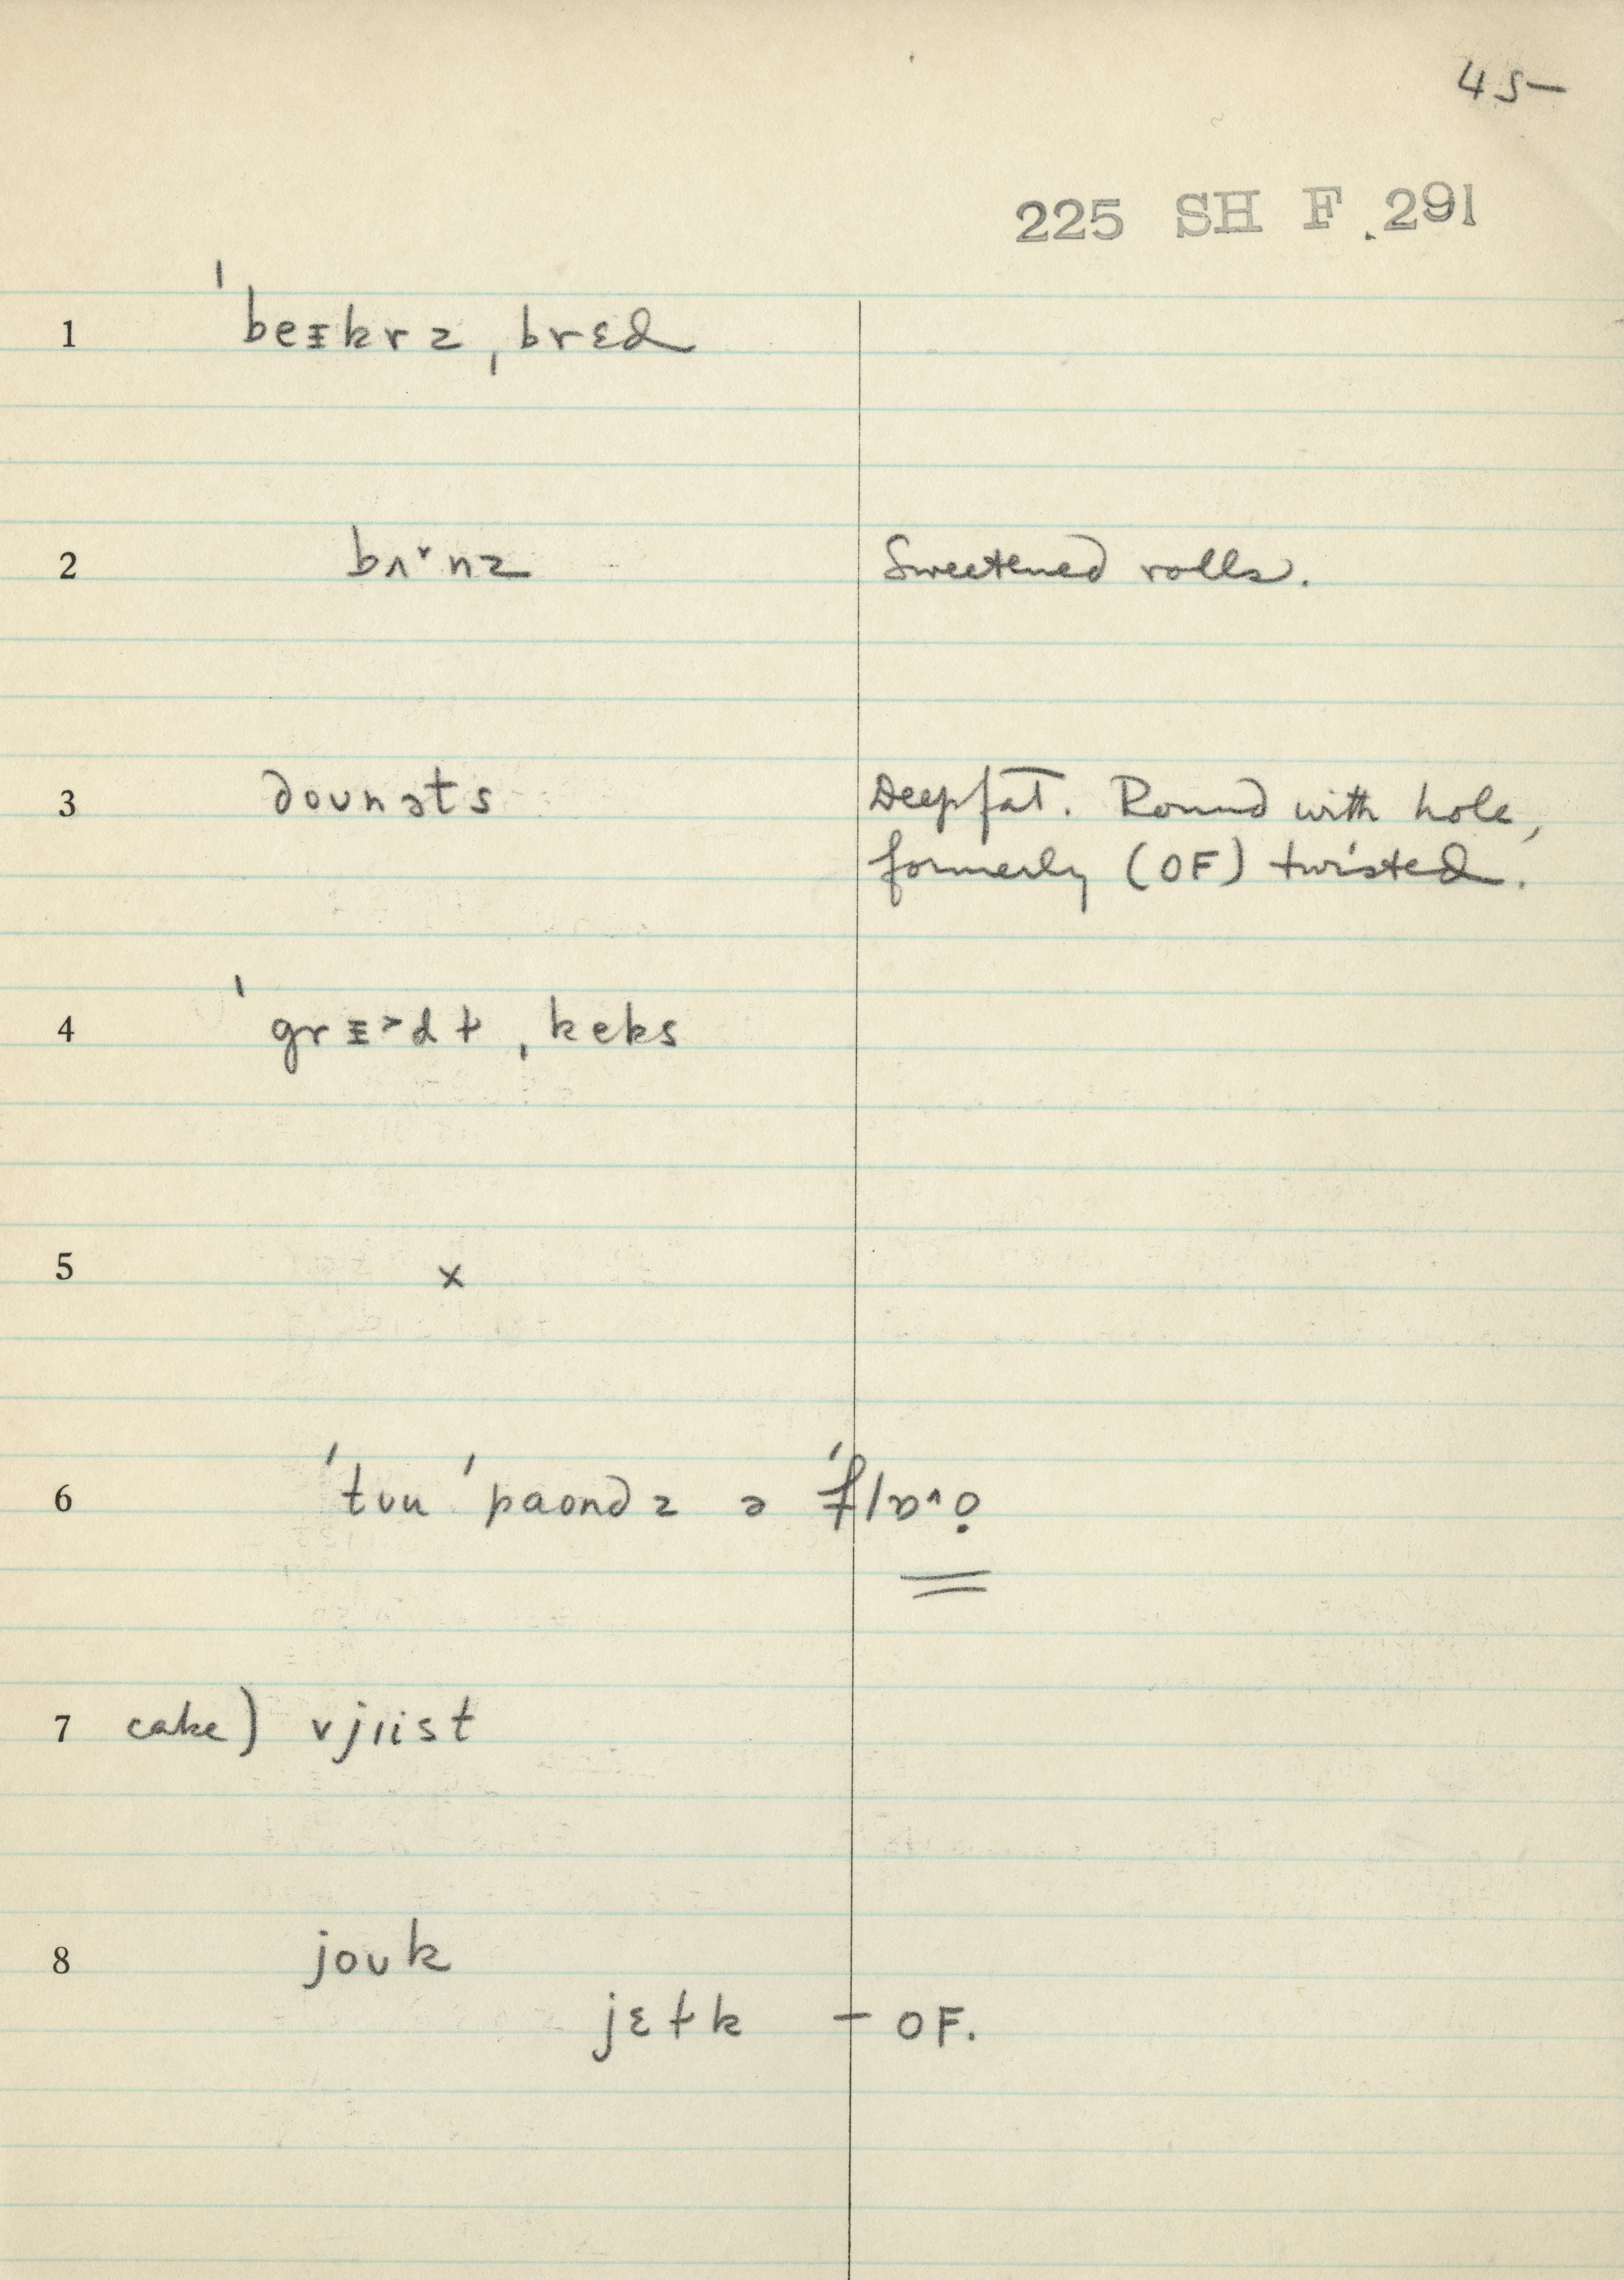 45
225 SH F 291
1 ˈbeɪkrz ˌbrɛd
2 bʌ˅nz Sweetened rolls.
3 dounəts Deep fat. Round with hole,
formerly (OF) twisted.
4 ˈgrɪ˃dɫ ˌkeks
5 x
6 ˈtuu ˈpaondz ə
7 cake) vjiist
8 jouk
jɛɫk – OF.